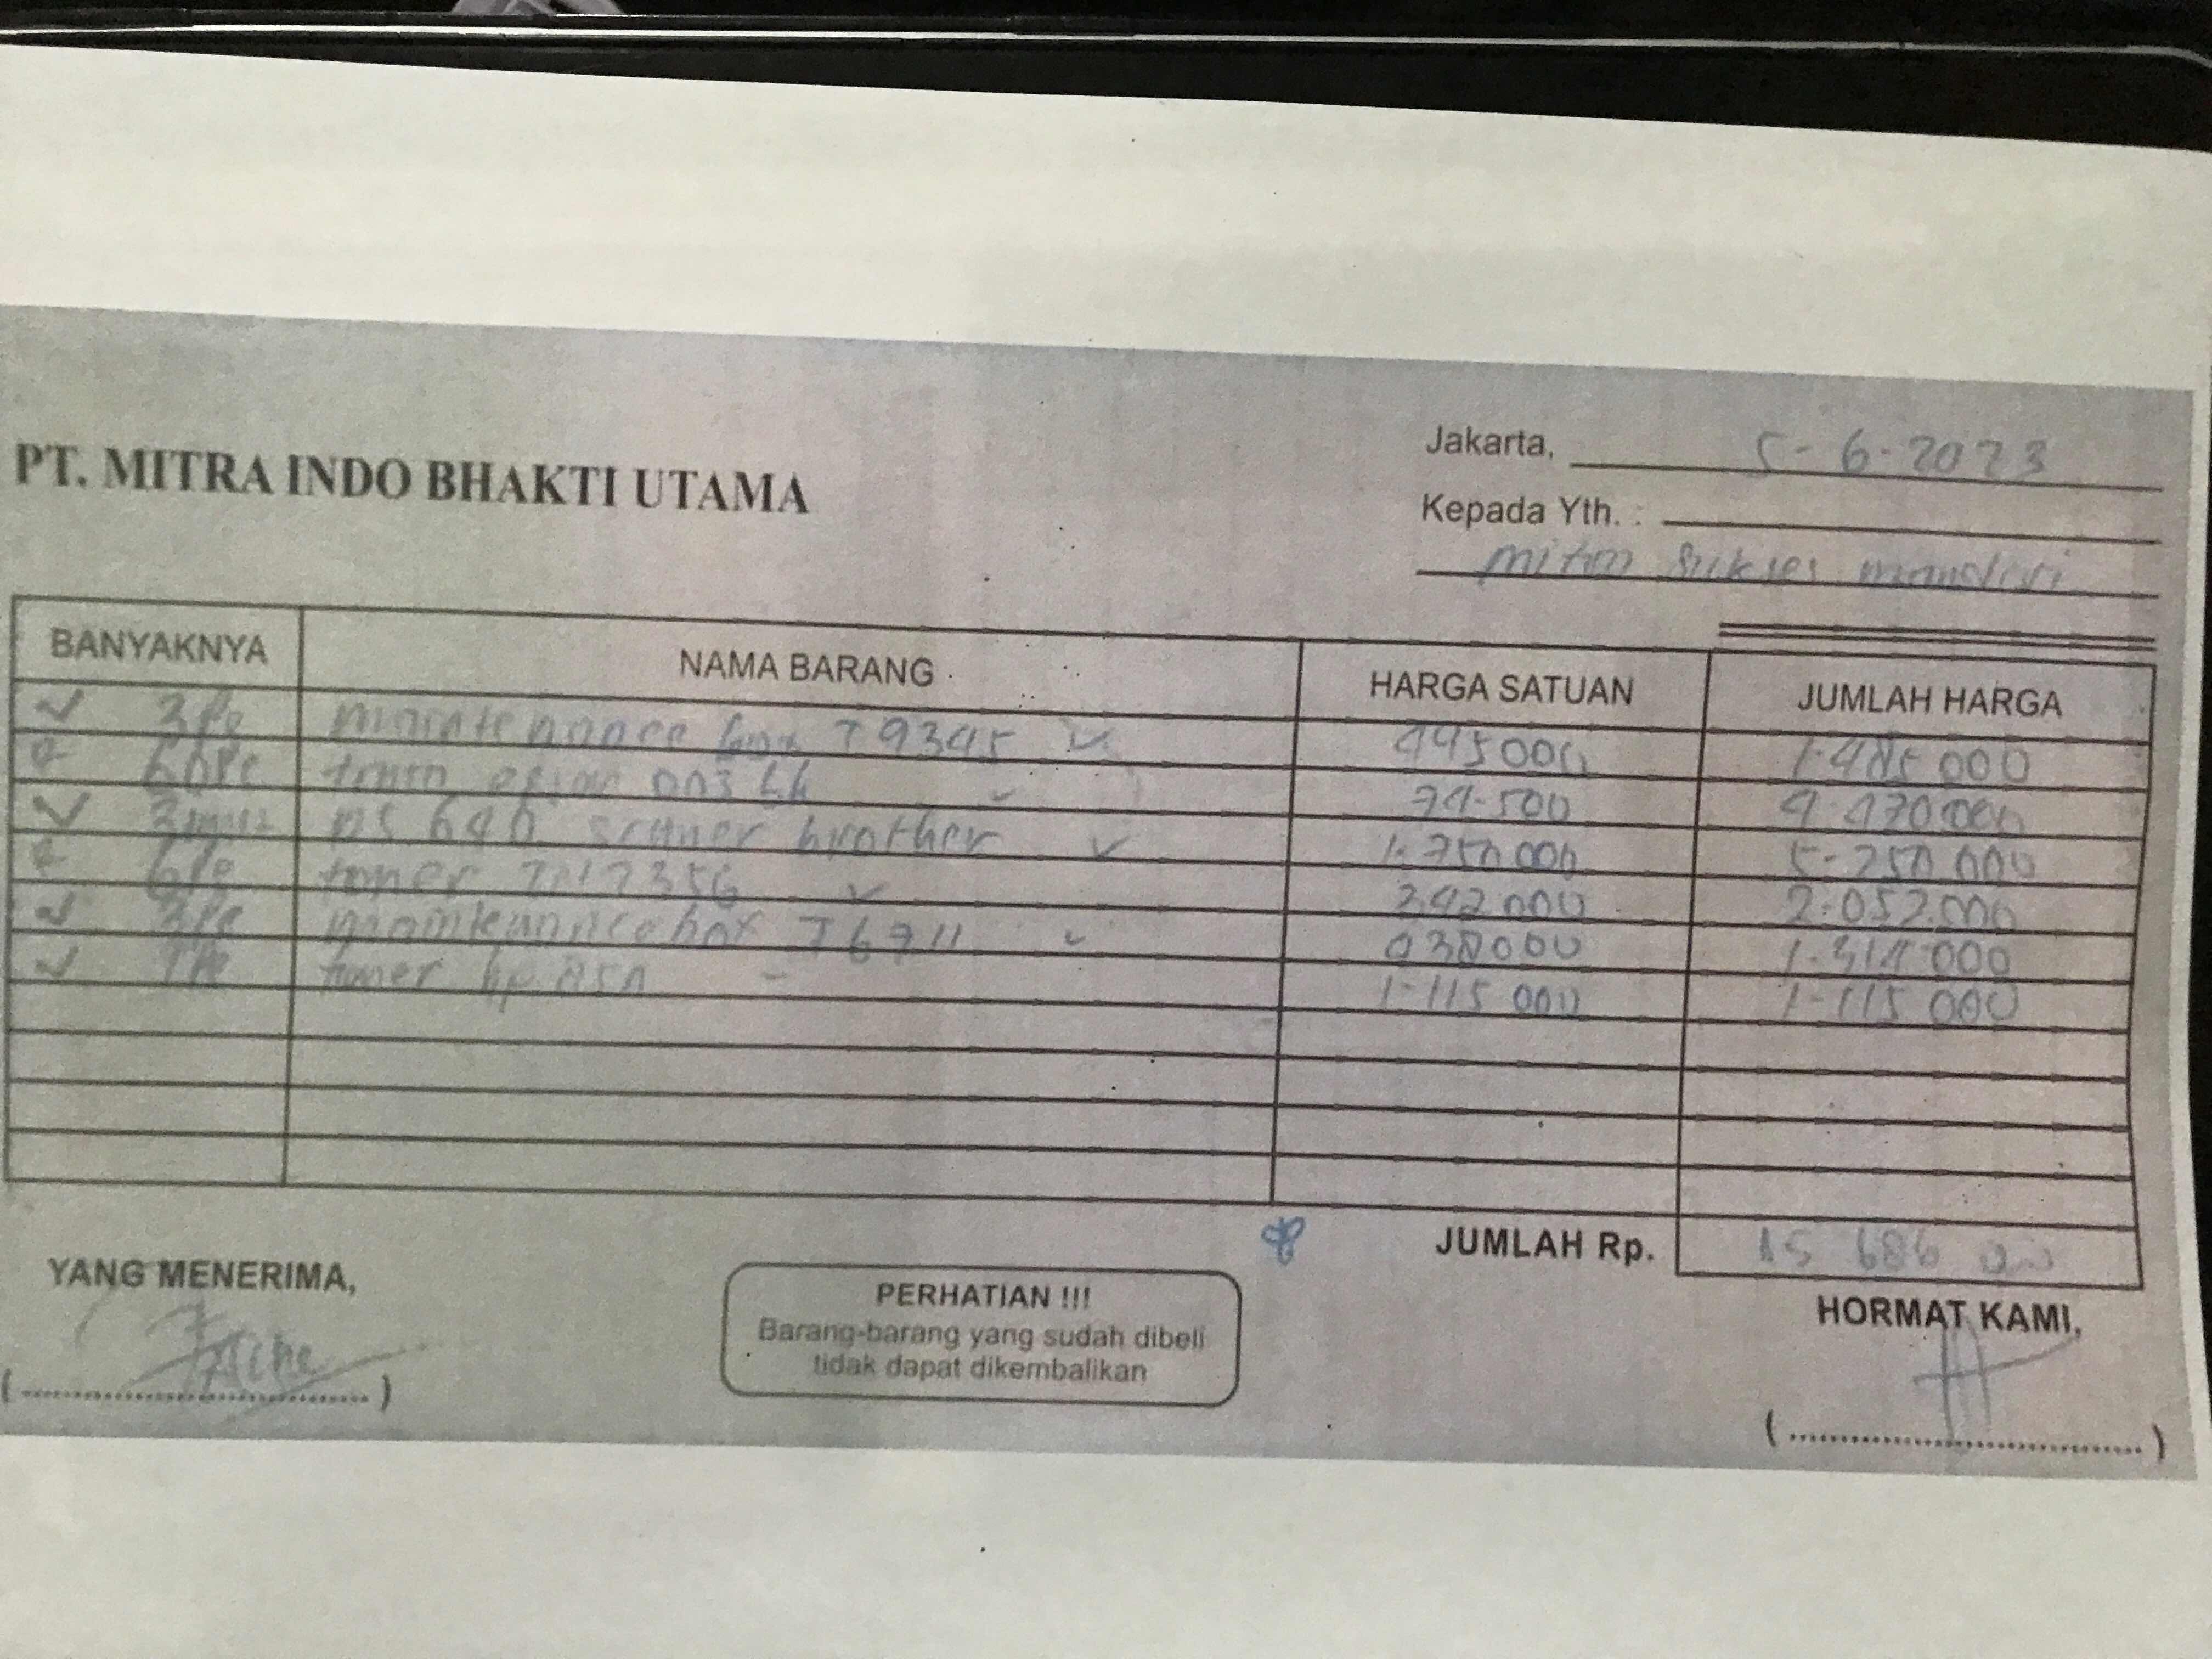 PT. MITRA INDO BHAKTI UTAMA
Jakarta, 5-6-2023
Kepada Yth. :
mitra sukses mandiri
BANYAKNYA NAMA BARANG HARGA SATUAN JUMLAH HARGA
3Pc maintenance box T9345 495000 1.485.000
60Pc tinta epson 003 bk 74.500 4.470.000
3 DS 640 scaner brother 1.750.000 5.250.000
6Pc toner TN2356 342.000 2.052.000
3Pc box T6711 438000 1.314.000
1Pc toner hp 85A 1.115.000 1.115.000
JUMLAH Rp. 15 686 000
YANG MENERIMA,
PERHATIAN !!!
Barang-barang yang sudah dibeli
tidak dapat dikembalikan
HORMAT KAMI,